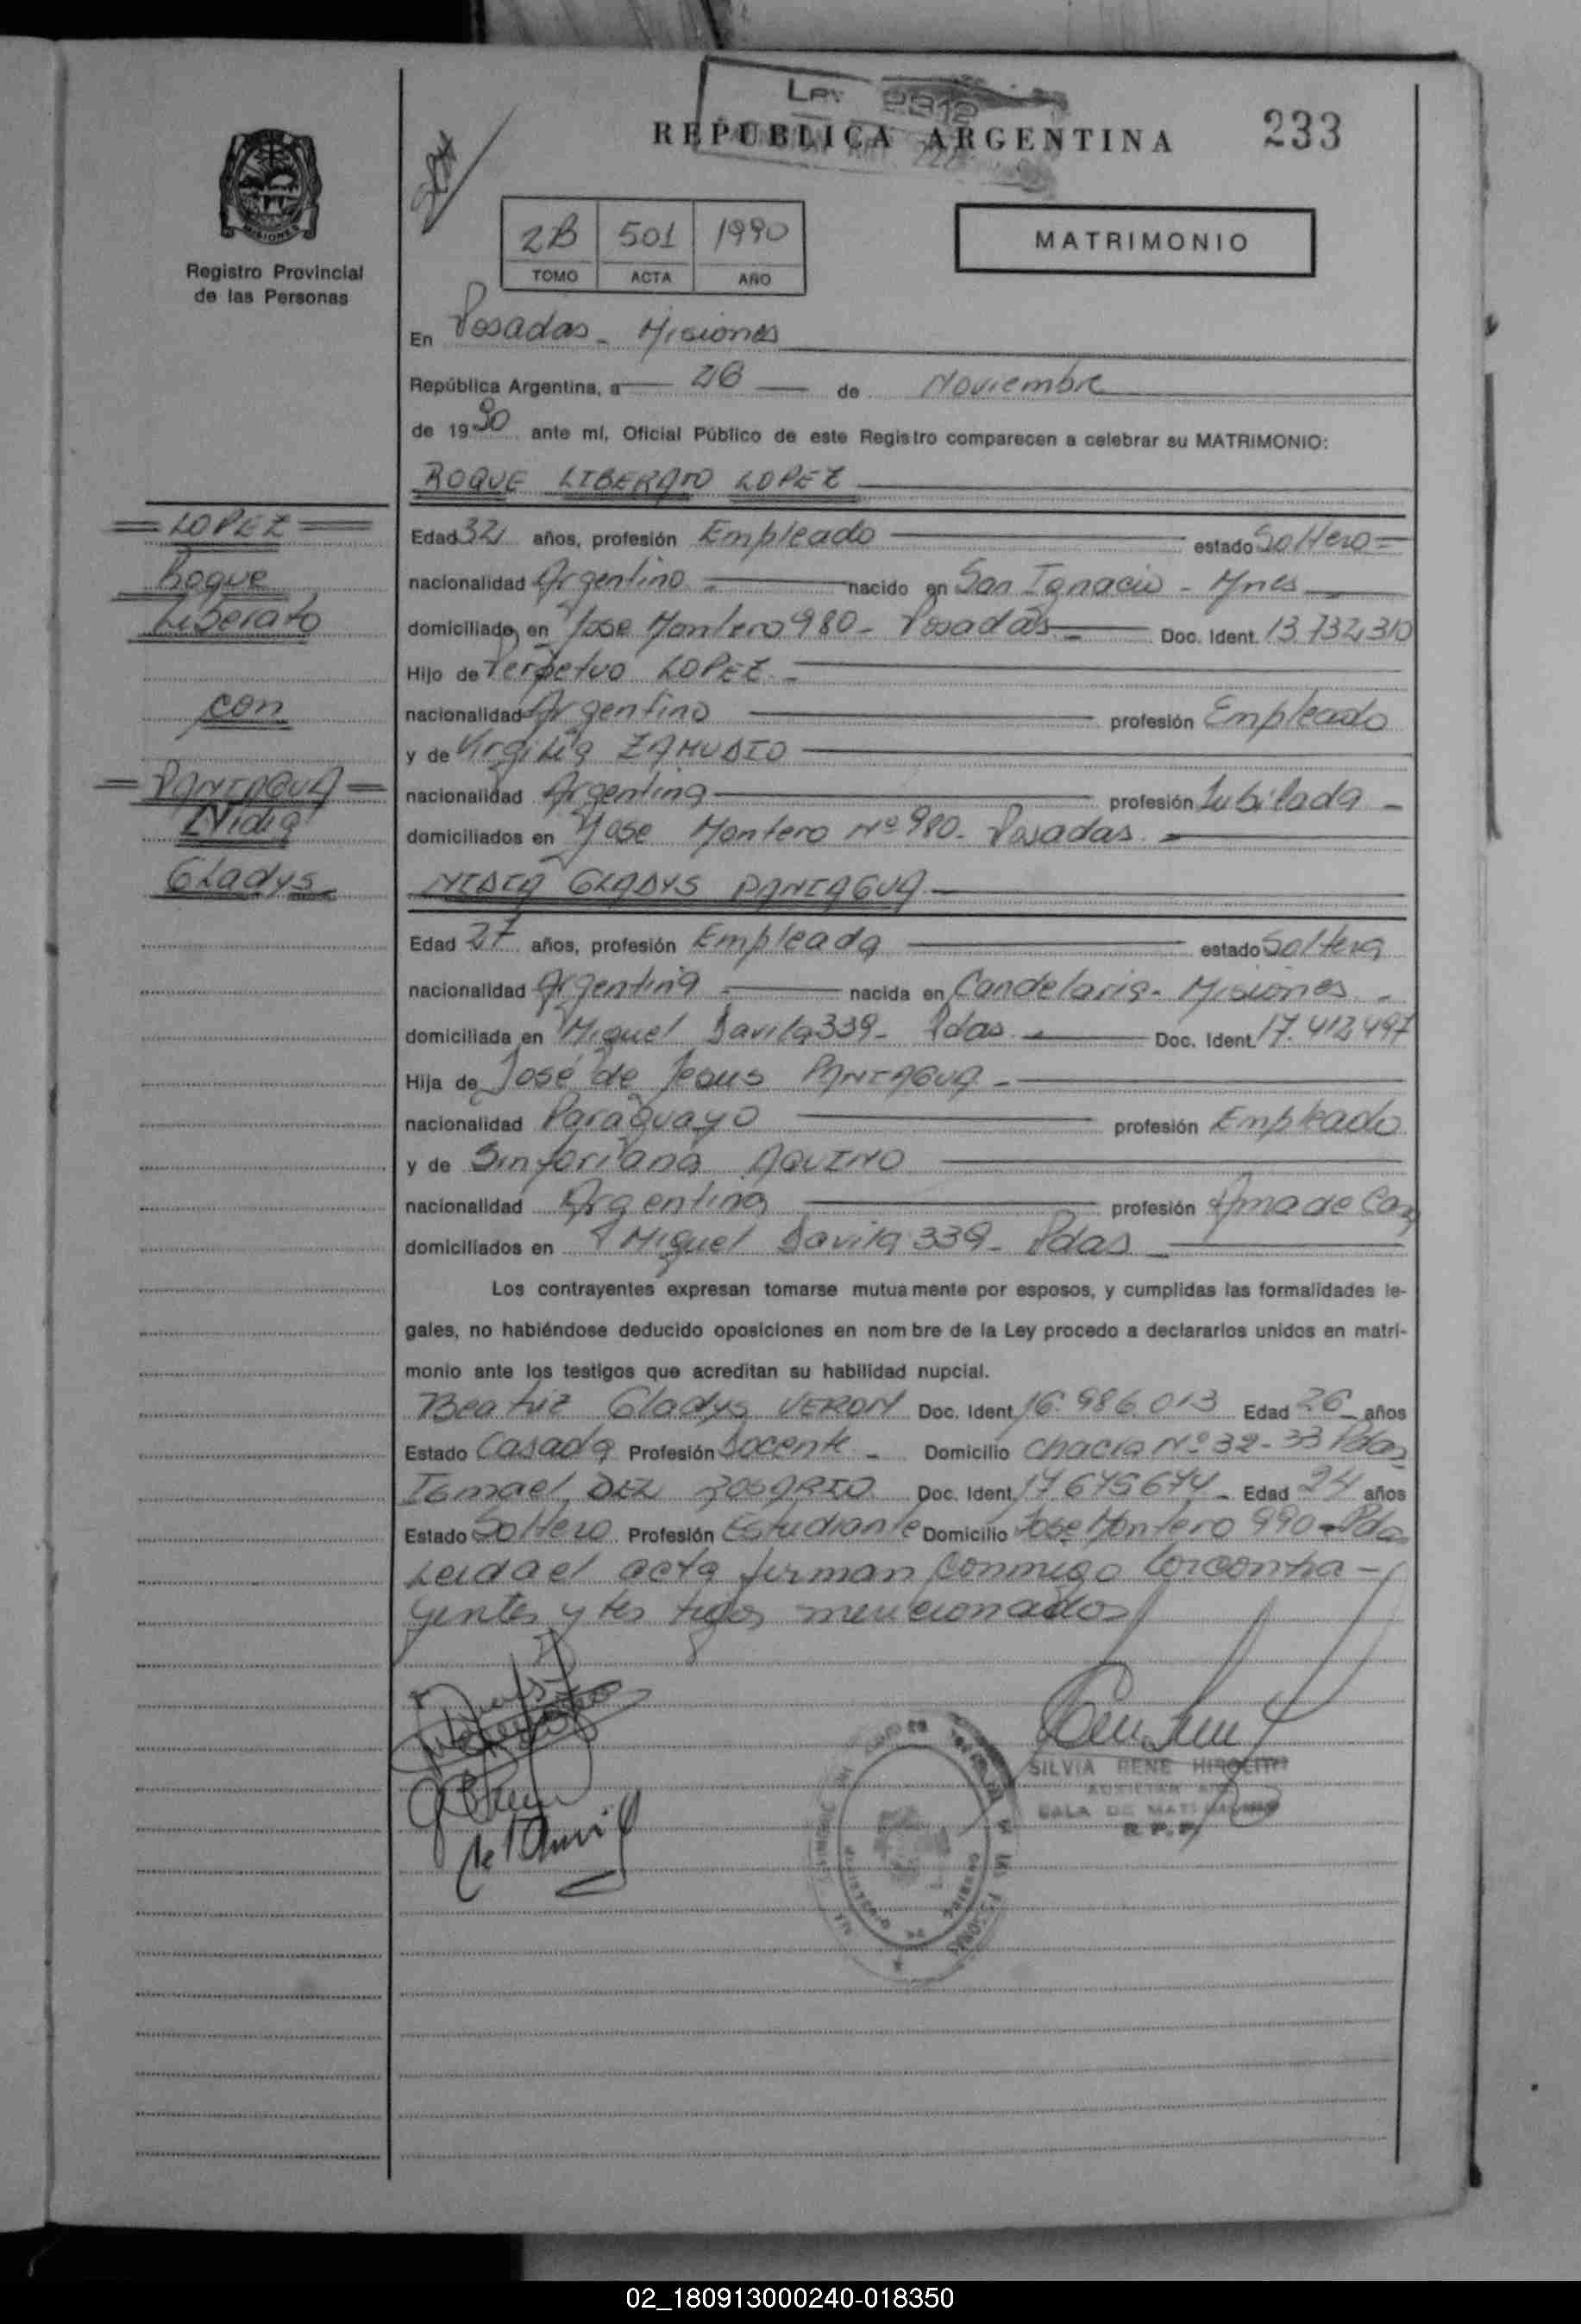 Ley 2312
REPUBLICA ARGENTINA
233
MISIONES
Registro Provincial
de las Personas
2B 501 1990
TOMO ACTA AÑO
MATRIMONIO
En Posadas - Misiones
República Argentina, a de Noviembre
de 1990 ante mí, Oficial Público de este Registro comparecen a celebrar su MATRIMONIO:
ROQUE LIBERATO LOPEZ
LOPEZ
Roque
Liberato
con
PANIAGUA
Nidia
Gladys
Edad 32 años, profesión Empleado estado Soltero
nacionalidad Argentino nacido en San Ignacio - Mnes
domiciliado en Jose Montero 980 - Posadas - Doc. Ident. 13.732,310
Hijo de Perpetuo LOPEZ -
nacionalidad Argentino profesión Empleado
y de Virgilia ZAMUDIO
nacionalidad Argentina profesión Jubilada -
domiciliados en Jose Montero Nº 980 - Posadas -
NIDIA GLADYS PANIAGUA
Edad 27 años, profesión Empleada estado Soltera
nacionalidad Argentina nacida en Candelaria - Misiones -
domiciliada en Miguel Davila 339 - Pdas - Doc. Ident. 17.412,497
Hija de José de Jesus PANIAGUA -
nacionalidad Paraguayo profesión Empleado
y de Sinforiana AQUINO
nacionalidad Argentina profesión Ama de Casa
domiciliados en Miguel Davila 339 - Pdas -
Los contrayentes expresan tomarse mutuamente por esposos, y cumplidas las formalidades le-
gales, no habiéndose deducido oposiciones en nombre de la Ley procedo a declararlos unidos en matri-
monio ante los testigos que acreditan su habilidad nupcial.
Beatriz Gladys VERON Doc. Ident. 16.986.013 Edad 26 años
Estado Casada Profesión Docente - Domicilio Chacra Nº 32-33 Pdas
Ismael DEL ROSARIO Doc. Ident. 17.675674 - Edad 24 años
Estado Soltero Profesión Estudiante Domicilio Jose Montero 990 - Pdas
Leida el acta firman conmigo los contra-
yentes y los tgos mencionados
SILVIA RENE HIPOLITO
AUXILIAR
SALA DE MATRIMONIO
R. P. P.
02_180913000240-018350